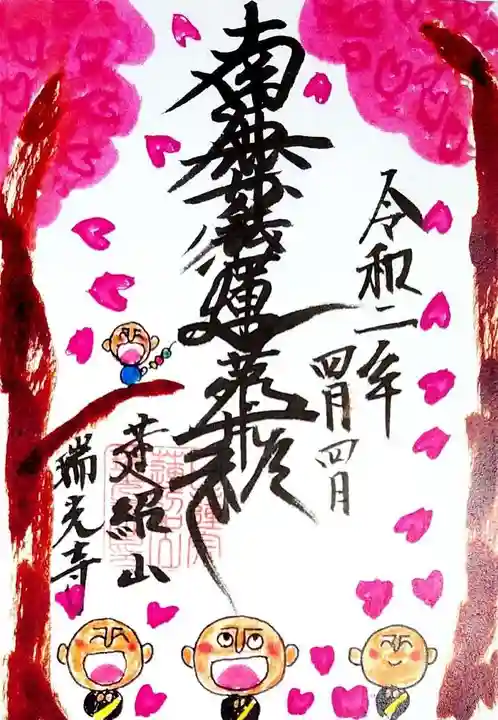 令和二年
四月四日
南無妙法蓮華経
蓮紹山
瑞光寺